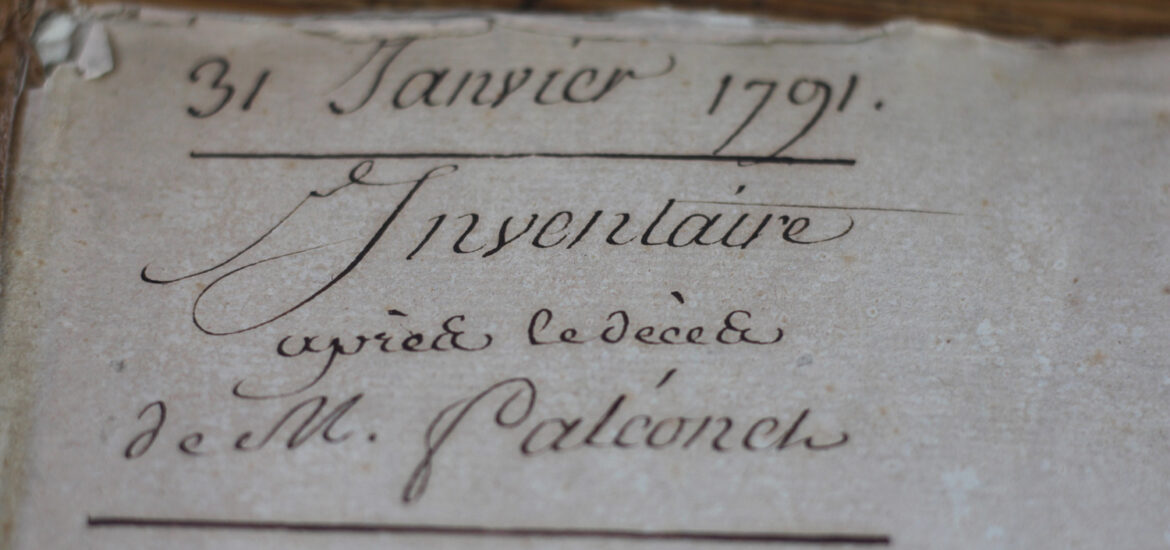 31 Janvier 1791.
Inventaire
après le décès
de M. Falconet